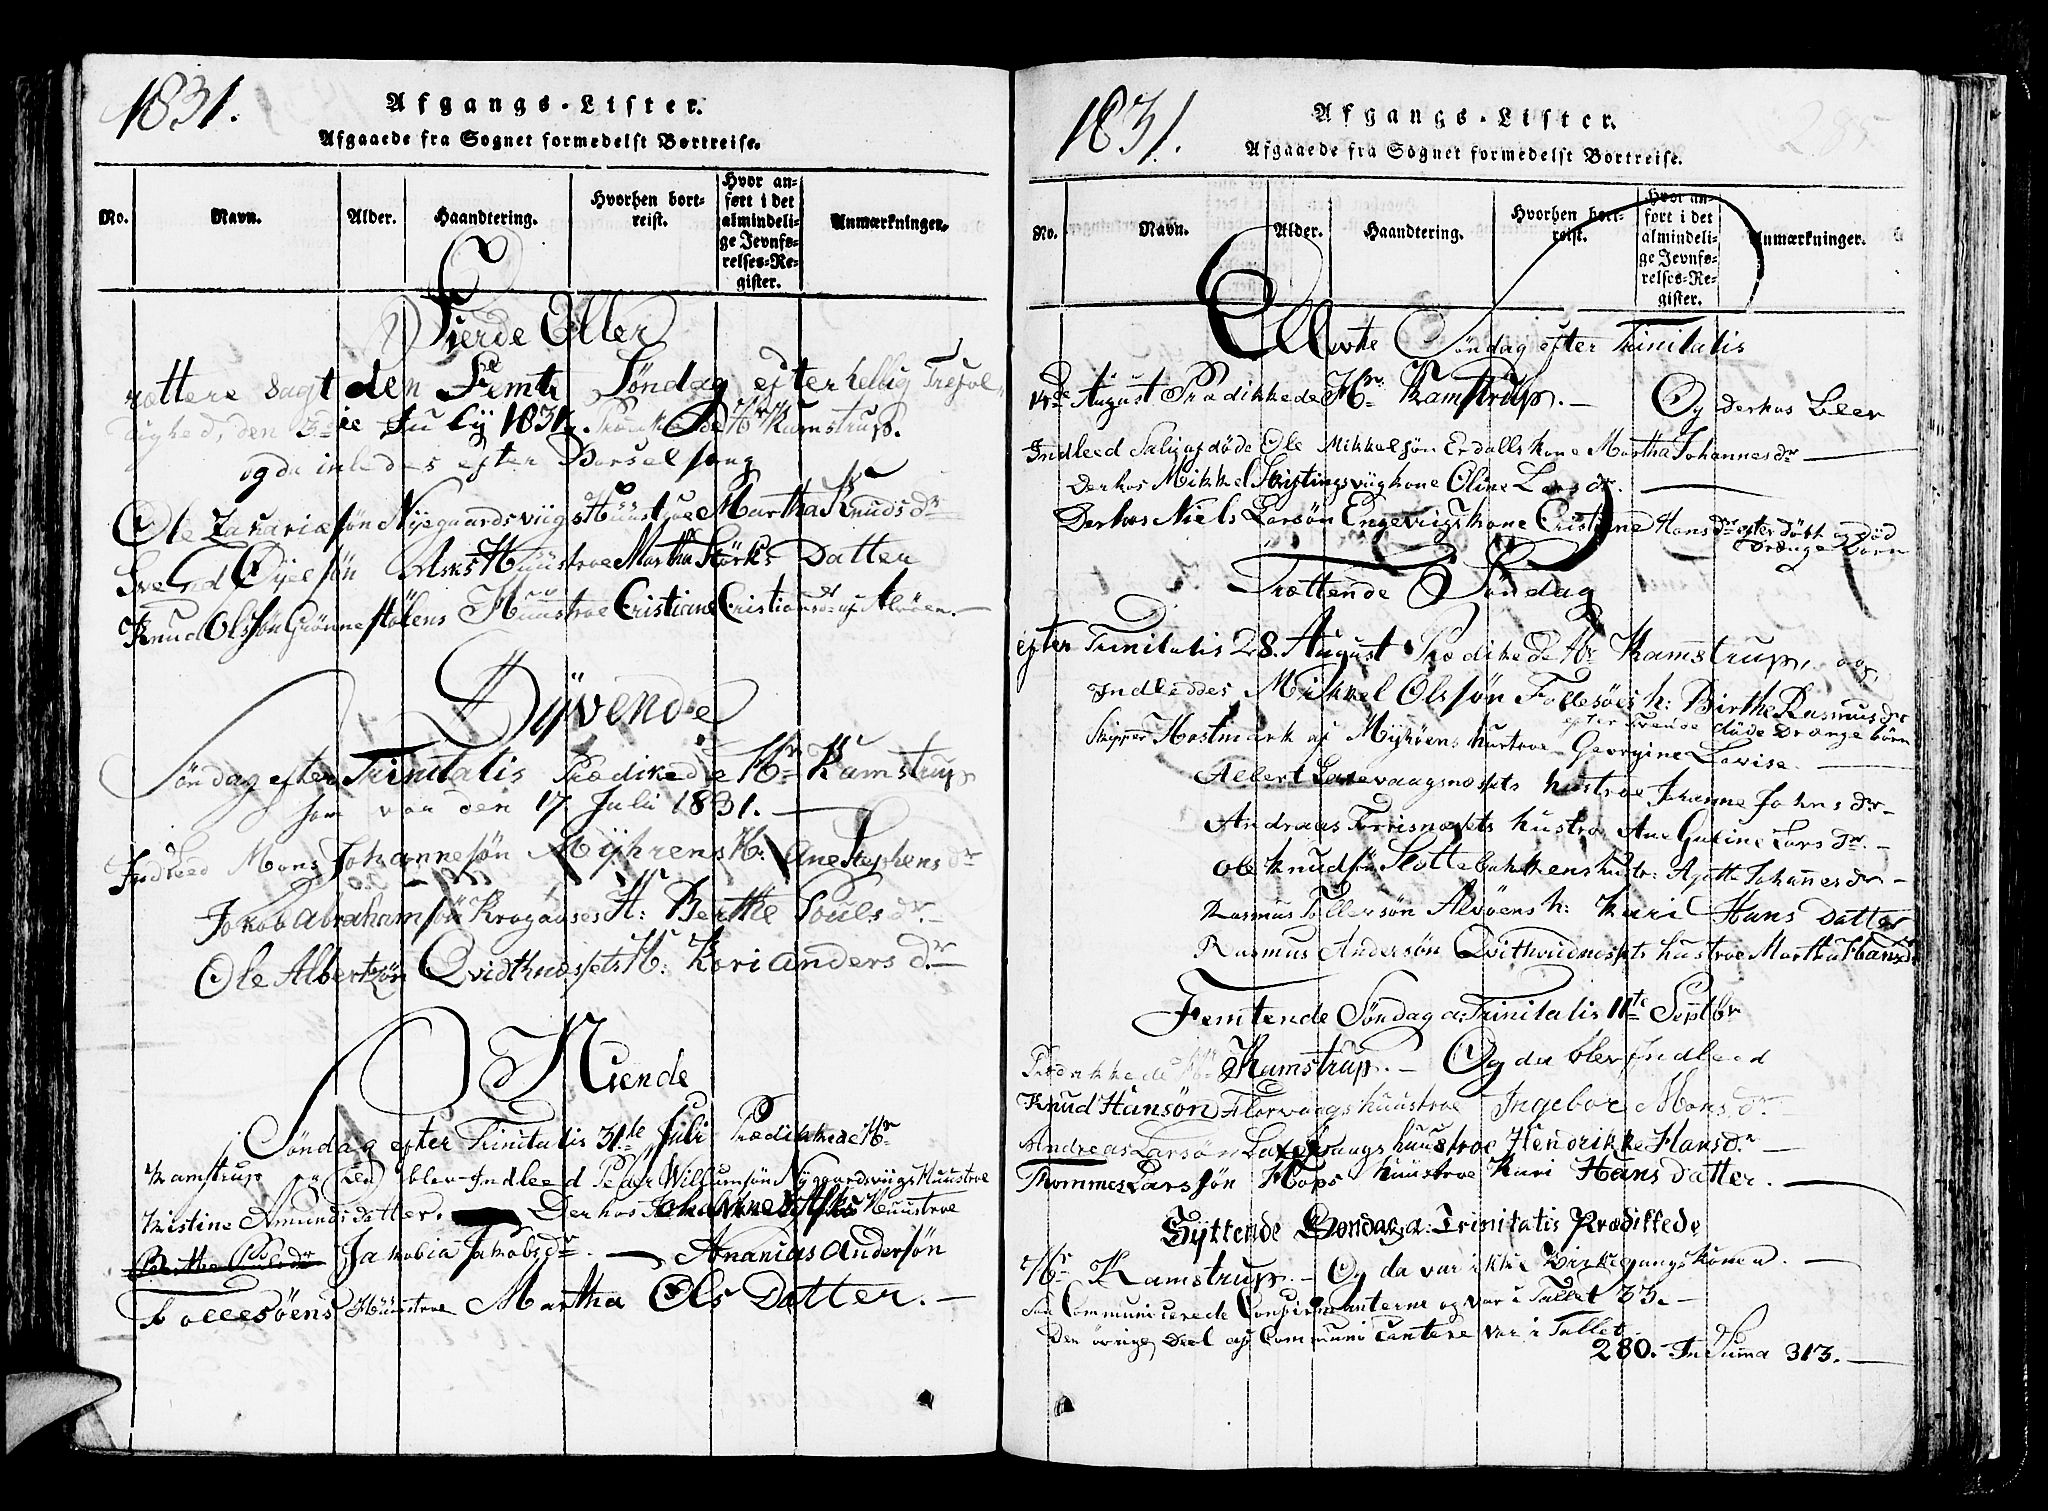 1831.
Afgangs-Lister.
Afgaaede fra Sognet formedelst Bortreise.
No.
Navn.
Alder.
Haandtering.
Hvorhen bort-
reist.
Hvor an-
ført i det
almindeli-
ge Jevnfø-
relses-Re-
gister.
Anmærkninger.
Fierde Eller
rættere sagt den Femte Søndag efter hellig Trefol-
dighed, den 3die July 1831. Prædikede Hr Kamstrup.
og da inledes efter Barselsæng
Ole Zakariasøn Nygaardsviigs Huustroe Martha Knudsdr
Svend Øyelsøn Asks Huustroe Martha Størks Datter
Knud Olsøn Grønnestølens Huustroe Cristiane Cristiansdr af Alvøen.
Syvende
Søndag efter Trinitatis Prædikede Hr Kamstrup
som var den 17 Juli 1831.
Indleed Mons Johannesøn Myhrens H: Ane Stephensdr
Jakob Abrahamsøn Kragaases H: Berthe Poulsdr.
Ole Albertzøn Qvidthudsets H: Kari Andersdr.
Niende
Søndag efter Trinitatis 31te Juli Prædikkede Hr
Kamstrup og da blev Indleed Peder Willumsøn Nygaardsviigs Huustroe
Kristine Amundsdatter. Derhos Asks Huustroe
Berthe Poulsdr Jakobia Jakobsdr. Ananias Andersøn
Follesøens Huustroe Martha Ols Datter.
1831.
Afgangs-Lister.
Afgaaede fra Sognet formedelst Bortreise.
No.
Navn.
Alder.
Haandtering.
Hvorhen bort-
reist.
Hvor an-
ført i det
almindeli-
ge Jevnfø-
relses-Re-
gister.
Anmærkninger.
Ellevte Søndag efter Trinitatis
14de August Prædikkede Hr. Kamstrup. Og derhos Blev
Indleed Salig afdøde Ole Mikkelsøn Erdalls kone Martha Johannesdr
Derhos Mikkel Skistingsviig kone Oline Larsdr.
Derhos Niels Larsøn Engeviigs kone Cristiane Hansdr efter døbt og død
Drænge Barn
Trættende Søndag
efter Trinitatis 28. August Prædikede Hr Kamstrup, og
Indleddes Mikkel Olssøn Follesøes h: Birthe Rasmusdr
efter Tvende døde Drænge børn
Skipper Hostmark af Myhrens hustroe Georgine Lovise.
Albert Laxevaagsnesets hustroe Johanne Johnsdr
Andreas Torrisnesets hustro Ane Gurine Larsdr.
Ole Knudsøn Slottebakkens hustr: Agethe Johannesdr
Rasmus Tollersøn Alvøens h: Kari Hans Datter
Rasmus Andersøn Qvithvidnesets hustroe Martha Hansdr
Femtende Søndag a: Trinitatis 11te Septbr
Prædikkede Hr Kamstrup. Og da blev Indleed
Knud Hansøn Florvaags huustroe Ingebor Monsdr
Andreas Larsøn Laxevaags huustroe Hendrikke Hansdr
Thommes Larssøn Hops huustroe Kari Hans datter.
Syttende Søndag a: Trinitatis Prædikede
Hr Kamstrup. Og da var ikke Kirkegangskoner.
Communicerede Confirmanterne og var i Tallet 33.
Den øvrige Deel af Communicantere var i Tallet
280. In Summa 313.